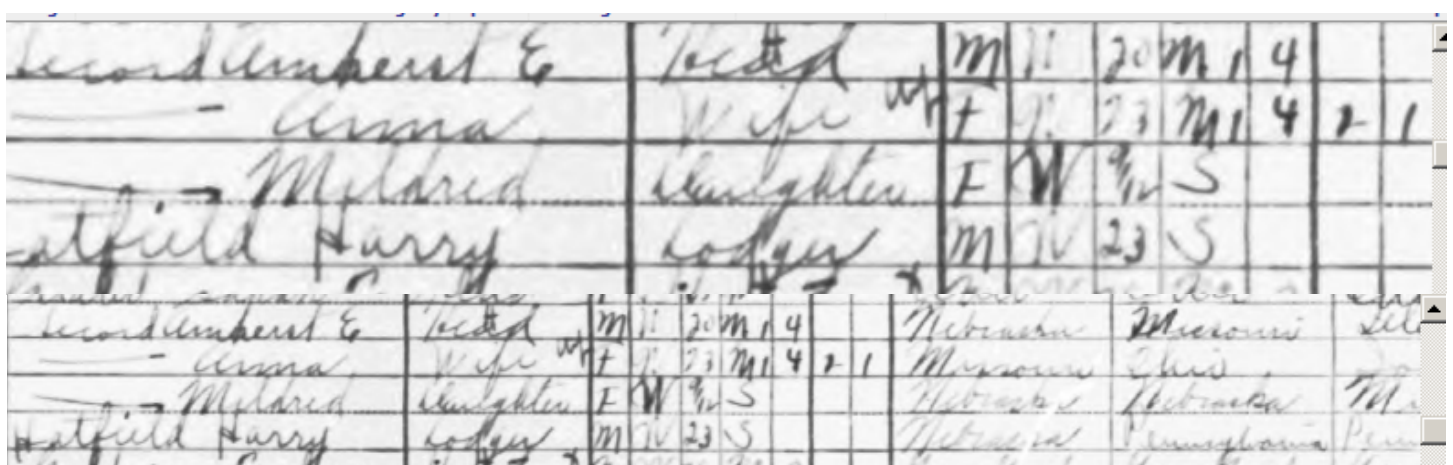 Secord Amherst E Head M W 20 M 1 4
— Anna Wife F W 23 M 1 4 2 1
— Mildred Daughter F W 9/12 S
Hatfield Harry Lodger M W 23 S
Secord Amherst E Head M W 20 M 1 4 Nebraska Missouri
— Anna Wife F W 23 M 1 4 2 1 Missouri Ohio
— Mildred Daughter F W 9/12 S Nebraska Nebraska
Hatfield Harry Lodger M W 23 S Nebraska Pennsylvania